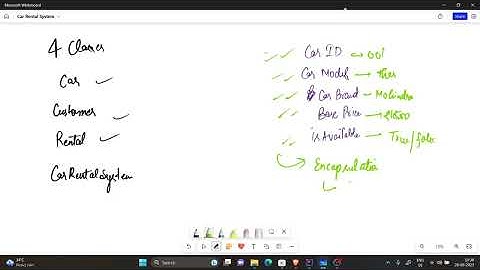 Microsoft Whiteboard
Car Rental System
4 Classes
Car
Customer
Rental
CarRentalSystem
Car ID → 001
Car Model → Thar
Car Brand → Mahindra
Base Price →
isAvailable → True/false
Encapsulation
Search
ENG